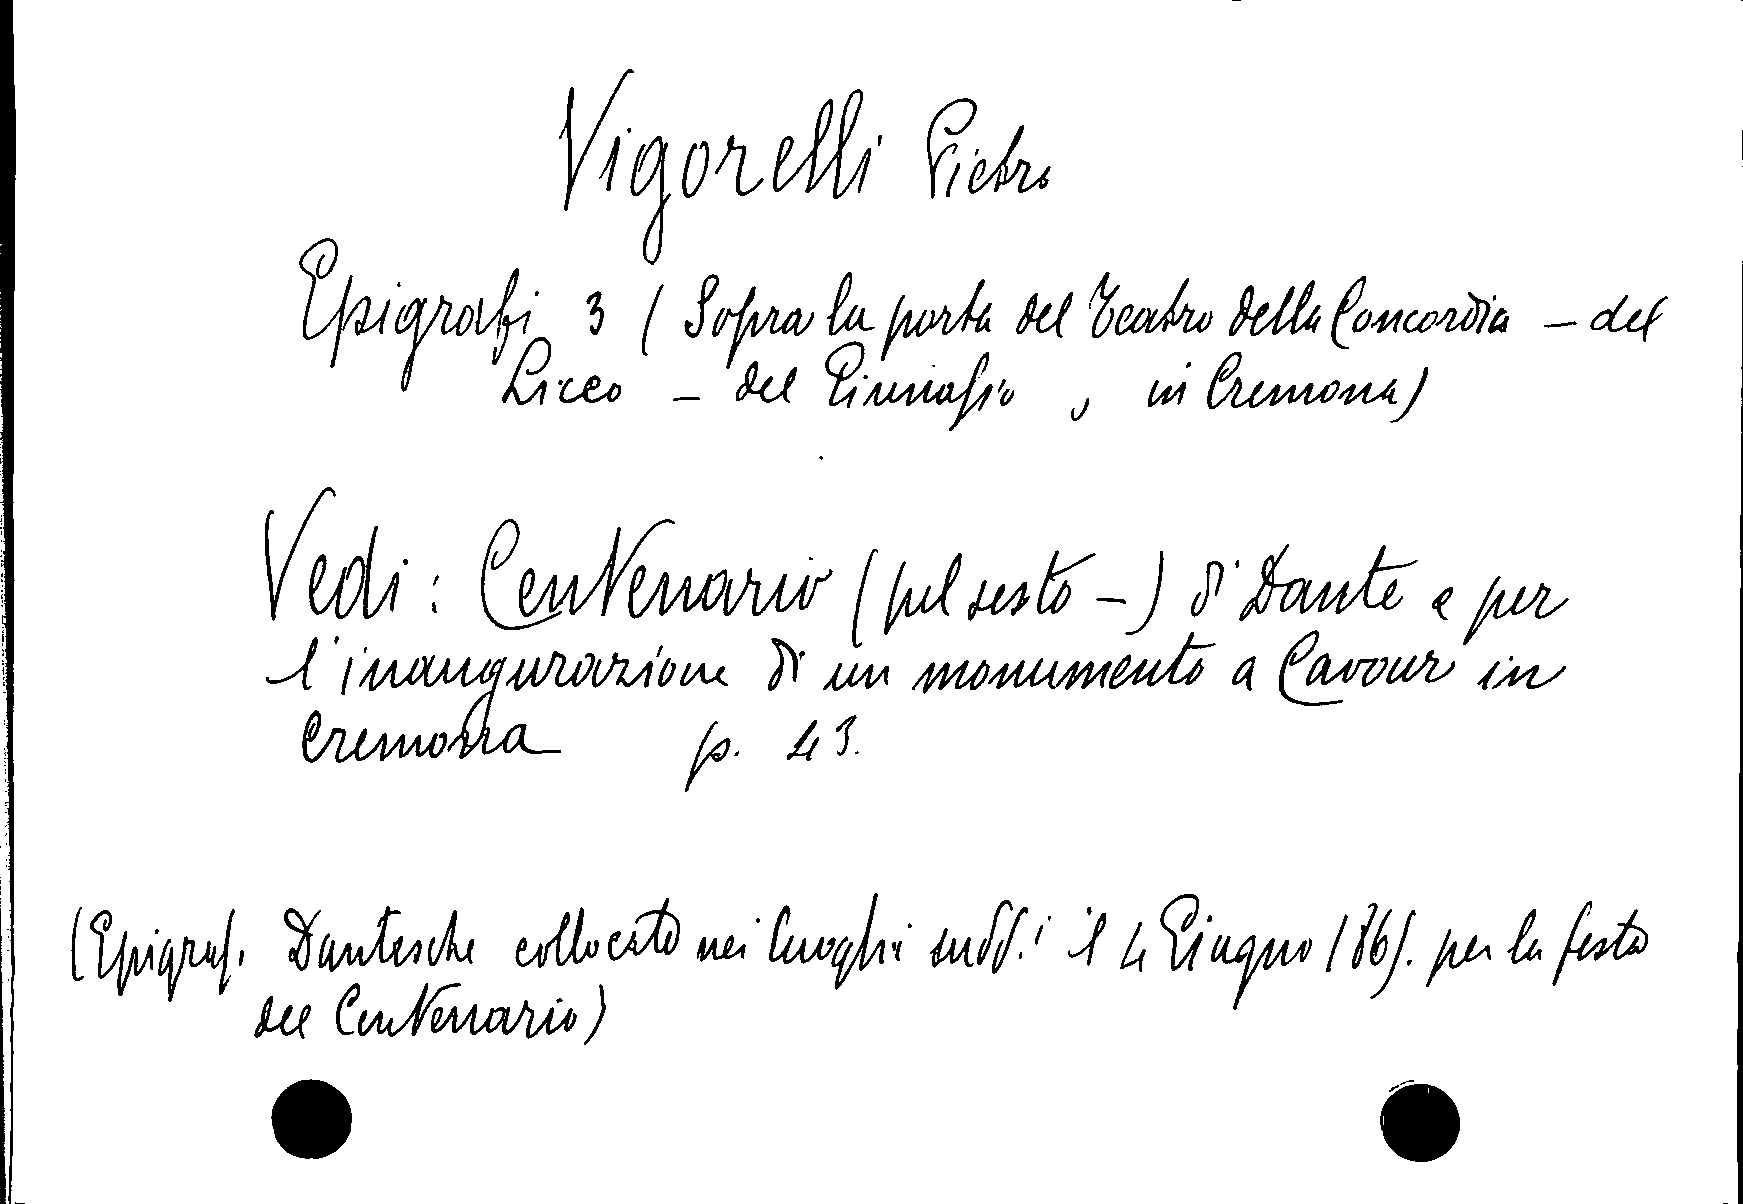 Vigorelli Pietro
Epigrafi 3 (Sopra la porta del Teatro della Concordia - del
Liceo - del Ginnasio, in Cremona)
Vedi: Centenario (pel sesto -) di Dante e per
l'inaugurazione di un monumento a Cavour in
Cremona p. 43.
(Epigraf. Dantesche collocate nei luoghi sudd.i il 4 Giugno 1865. per la festa
del Centenario)